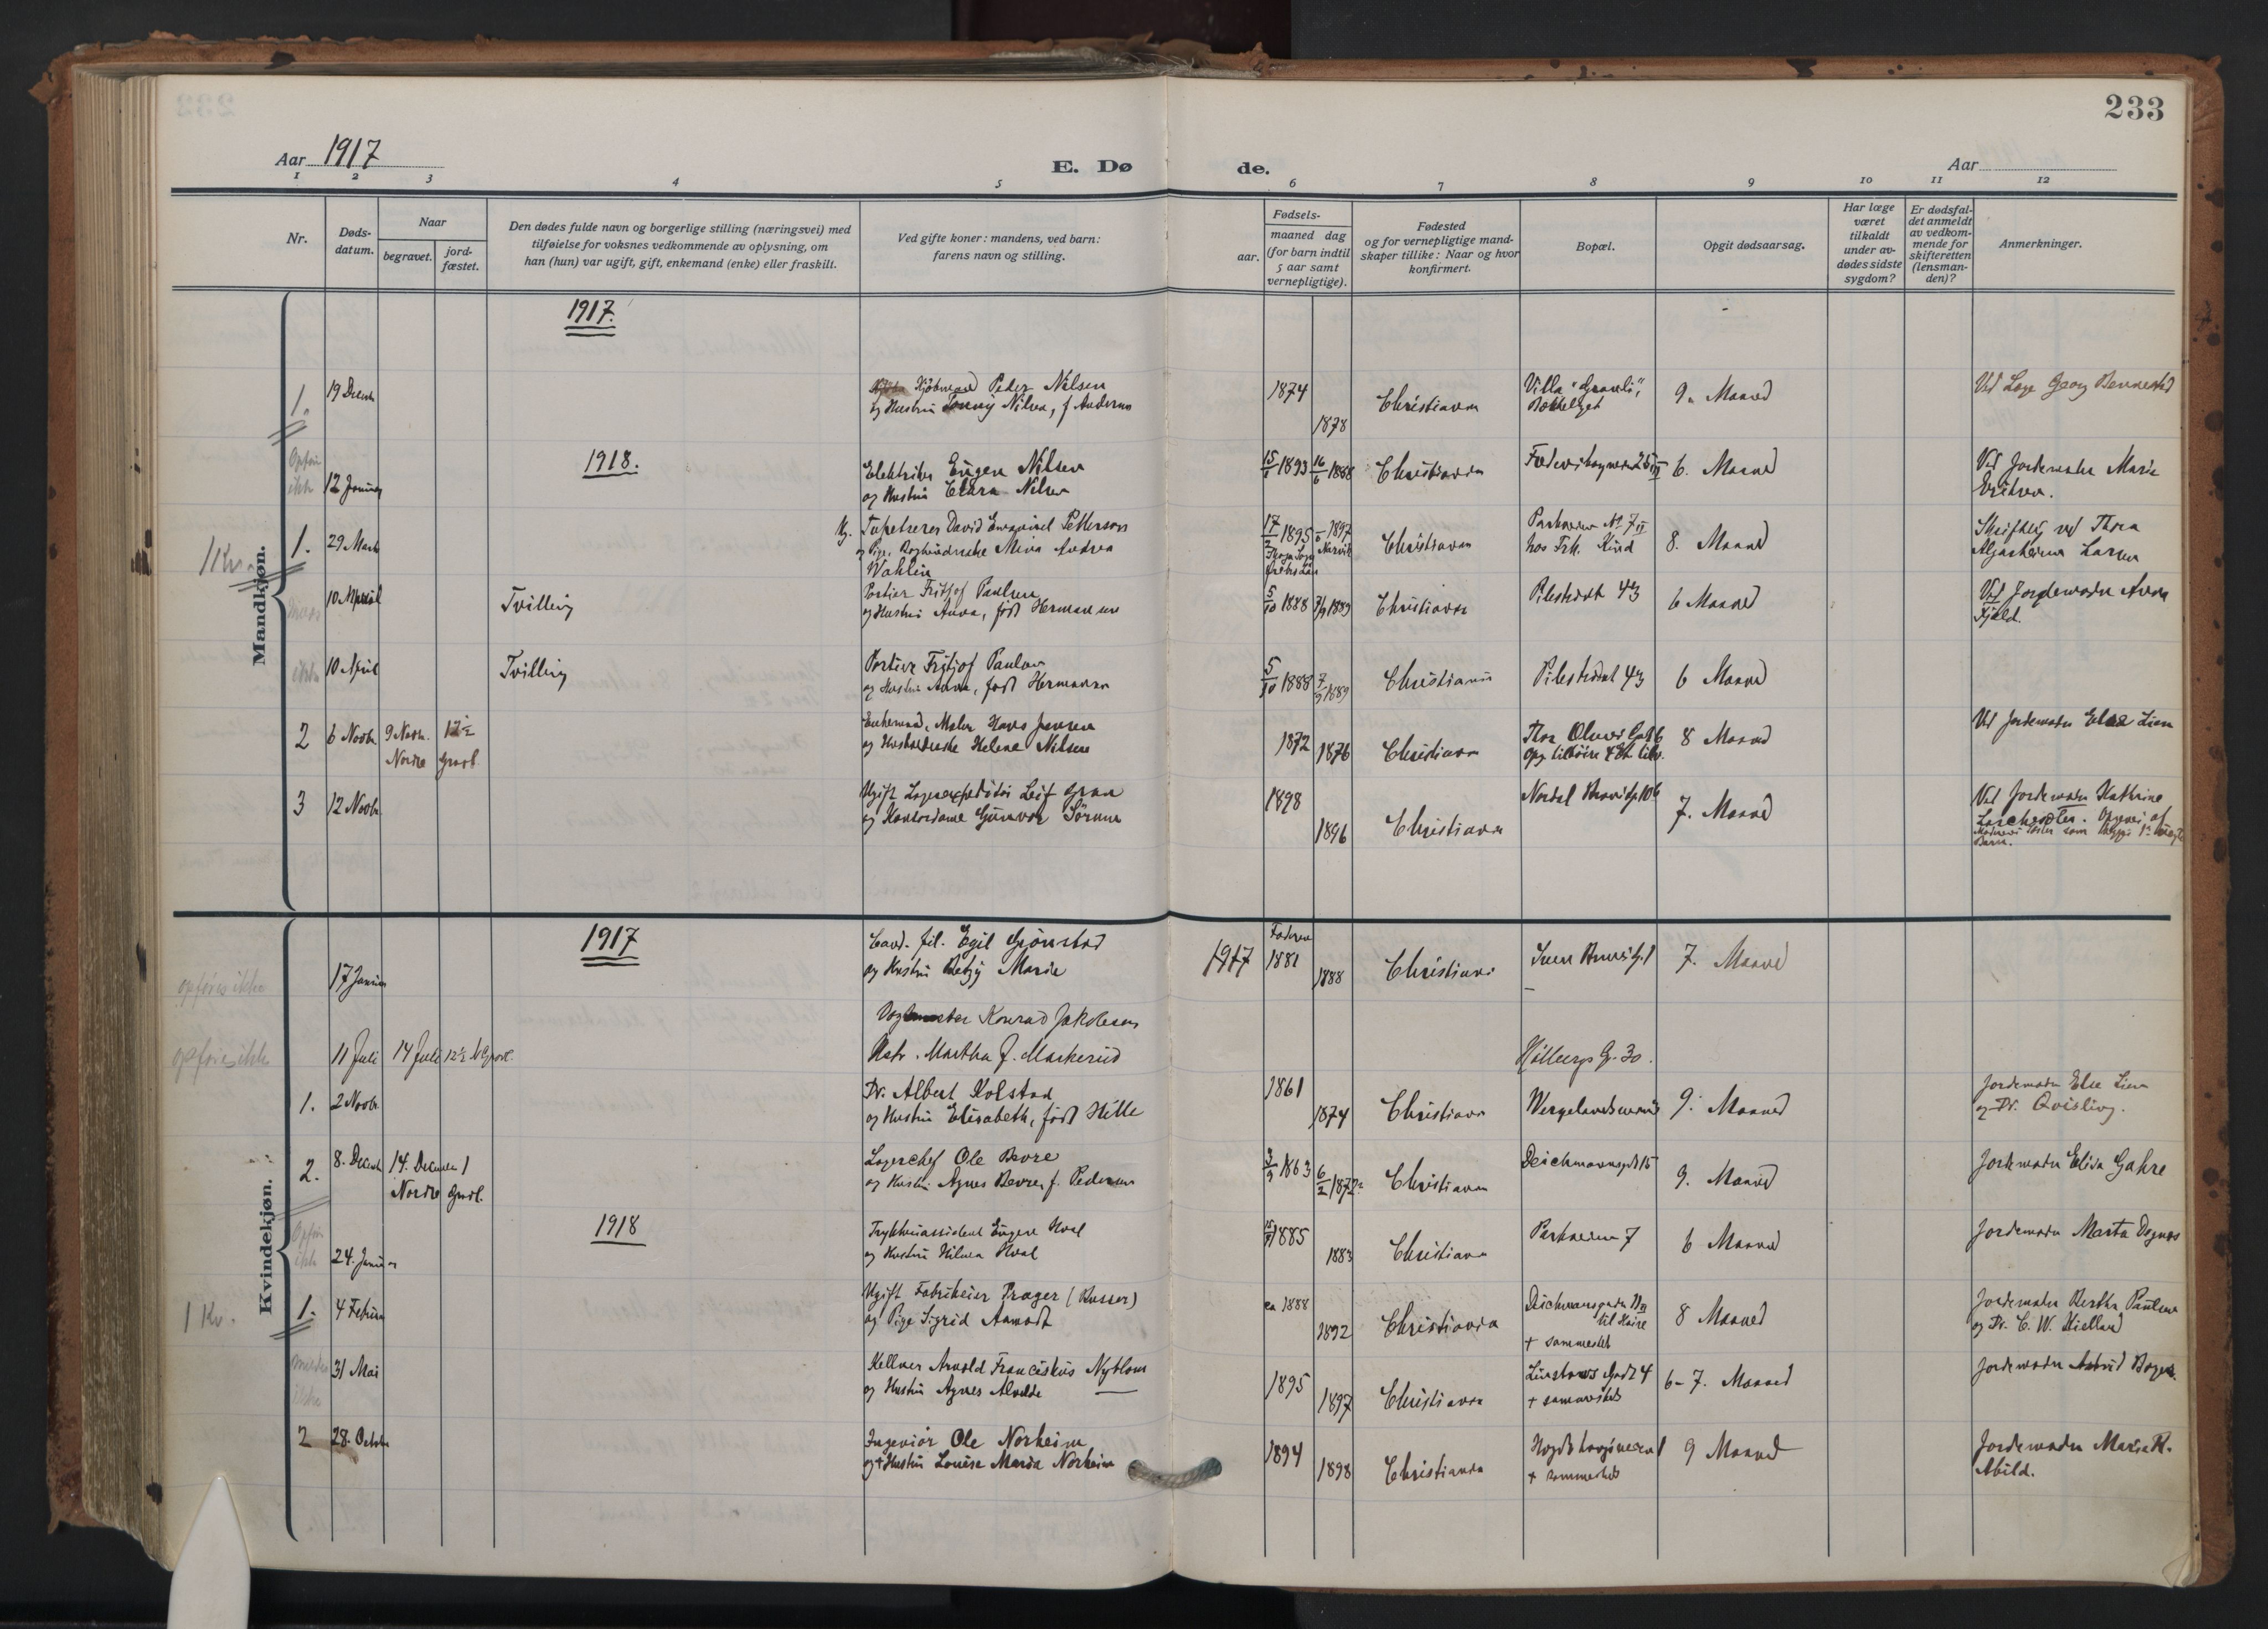 233
Aar 1917
E. Dø
de.
Aar
1 2 3 4 5 6 7 8 9 10 11 12
Nr.
Døds-
datum.
Naar
begravet.
jord-
fæstet.
Den dødes fulde navn og borgerlige stilling (næringsvei) med
tilføielse for voksnes vedkommende av oplysning, om
han (hun) var ugift, gift, enkemand (enke) eller fraskilt.
Ved gifte koner: mandens, ved barn:
farens navn og stilling.
Fødsels-
aar.
maaned dag
(for barn indtil
5 aar samt
vernepligtige).
Fødested
og for vernepligtige mand-
skaper tillike: Naar og hvor
konfirmert.
Bopæl.
Opgit dødsaarsag.
Har læge
været
tilkaldt
under av-
dødes sidste
sygdom?
Er dødsfal-
det anmeldt
av vedkom-
mende for
skifteretten
(lensman-
den)?
Anmerkninger.
Mandkjøn.
1917.
1. 19 Decemb
Kjøbmand Peder Nilsen
og Hustru Nilsen, f.
1874
1878
Christiania
Villa "Granli",
Bækkelaget
9. Maaned
Ved Læge Georg Bennested
1918.
Opføres
ikke
12 Januar
Elektriker Eugen Nilsen
og Hustru Clara Nilsen
15/1 1893 16/6 1888
Christiania
6. Maaned
Ved Jordemoder Marie
Eriksen.
1 Kv.
1. 29 Marts
Ug. Tapetserer David Emanuel Petterson
og Pige, Andrea
Wahlin
17/2 1895 1897
Narvik
Christiania
Parkveien No 7 II
hos Frk. Kind
8. Maaned
Skriftlig ved Thora
Larsen
10 April
Tvilling
Portier Fritjof Paulsen
og Hustru Anna, født Hermansen
5/10 1888 7/9 1889
Christiania
Pilestrædet 43
6 Maaned
Ved Jordemoder Anna
Fjeld.
ikke
10 April
Tvilling
Portier Fritjof Paulsen
og Hustru Anna, født Hermansen
5/10 1888 7/9 1889
Christiania
Pilestrædet 43
6 Maaned
2 6 Novbr. 9 Novbr. 12½
Nordre Gravl.
Enkemand, Maler Hans Jensen
og Helene Nilsen
1872
1876
Christiania
Thor Olsens Gade 6
8 Maaned
Ved Jordemoder Elise Lien
3 12 Novbr.
Ugift Lagerexpeditør Leif Gran
og Kontordame Gunvor
1898
1896
Christiania
Nordal Brunsgt 10b
7. Maaned
Ved Jordemoder Kathrine
Barn.
Kvindekjøn.
1917
opføres ikke
17 Januar
Cand. fil. Egil Gjønstad
og Hustru Betzy Marie
1917
Faderen
1881
1888
Christiania
7. Maaned
opføres ikke
11 Juli 14 Juli 12½ N Gravl.
Konrad Jakobsen
Hstr. Martha f. Markerud
Holbergs G. 30.
1. 2 Novbr.
Dr. Albert Kolstad
og Hustru Elisabeth, født Hille
1861
1874
Christiania
Wergelandsveien
9. Maaned
Jordemoder Else Lien
og Dr. Qvisling.
2. 8. Decemb 14. December 1
Nordre Gravl.
Lagerchef Ole Bevre
og Hustru Agnes Bevre, f. Pedersen
3/3 1863 6/2 1872
Christiania
Deichmannsgt 15
9. Maaned
Jordemoder Elisa Gahre
1918
Opføres
ikke
24. Januar
Eugen Hval
og Hustru Hilma Hval
1885
1883
Christiania
Parkveien 7
6 Maaned
Jordemoder Marta
1 Kv.
1. 4 Februar
Ugift Fabrikeier Prager (Russer)
og Pige Sigrid Aamodt
ca 1888
1892
Christiania
Deichmansgaden 11
til Høire
+ sammesteds
8 Maaned
Jordemoder Bertha Paulsen
og Dr. C. W. Kielland
31 Mai
Kellner Arnold Franciskus Nyblom
og Hustru Agnes Alvilde
1895
1897
Christiania
Linstows Gade 4
+ sammesteds
6-7. Maaned
Jordemoder Astrid
2 28. October
Ingeniør Ole Norheim
og Hustru Louise Marie Norheim
1894
1898
Christiania
+ sammesteds
9 Maaned
Jordemoder Maria R.
Abild.